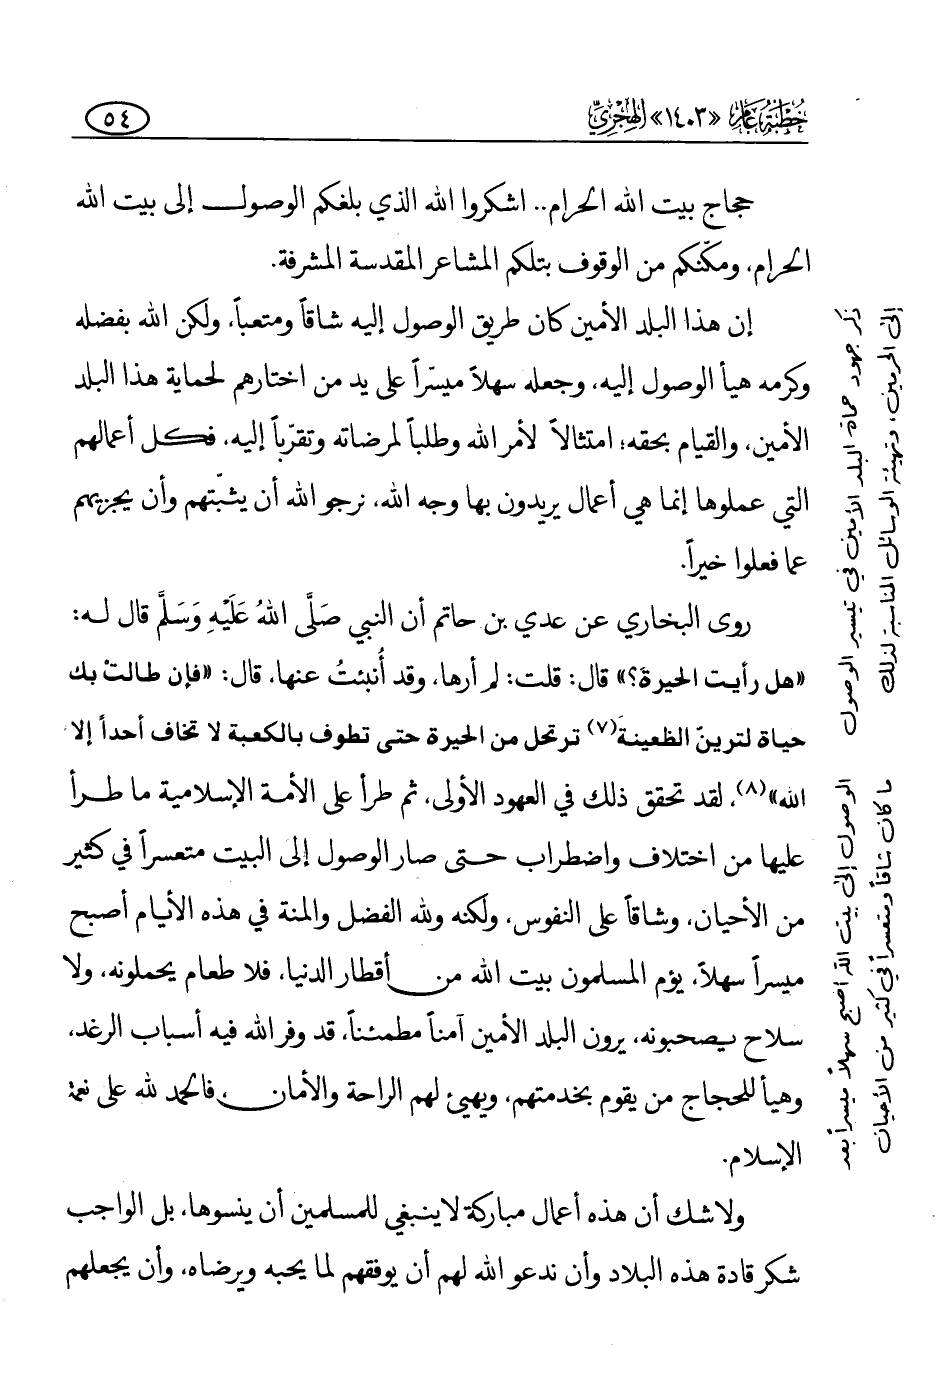 خطبة عام «١٤٠٣» الهجري
٥٤
حجاج بيت الله الحرام.. اشكروا الله الذي بلغكم الوصول إلى بيت الله
الحرام، ومكّنكم من الوقوف بتلكم المشاعر المقدسة المشرفة.
إن هذا البلد الأمين كان طريق الوصول إليه شاقاً ومتعباً، ولكن الله بفضله
وكرمه هيأ الوصول إليه، وجعله سهلاً ميسّراً على يد من اختارهم لحماية هذا البلد
الأمين، والقيام بحقه؛ امتثالاً لأمر الله وطلباً لمرضاته وتقرّباً إليه، فكل أعمالهم
التي عملوها إنما هي أعمال يريدون بها وجه الله، نرجو الله أن يثبّتهم وأن يجزيهم
عما فعلوا خيراً.
روى البخاري عن عدي بن حاتم أن النبي صَلَّى اللهُ عَلَيْهِ وَسَلَّم قال له:
«هل رأيت الحيرة؟» قال: قلت: لم أرها، وقد أُنبئتُ عنها، قال: «فإن طالتْ بك
حياة لترينّ الظعينةَ(٧) ترتحل من الحيرة حتى تطوف بالكعبة لا تخاف أحداً إلا
الله»(٨)، لقد تحقق ذلك في العهود الأولى، ثم طرأ على الأمة الإسلامية ما طرأ
عليها من اختلاف واضطراب حتى صار الوصول إلى البيت متعسراً في كثير
من الأحيان، وشاقاً على النفوس، ولكنه ولله الفضل والمنة في هذه الأيام أصبح
ميسراً سهلاً، يؤم المسلمون بيت الله من أقطار الدنيا، فلا طعام يحملونه، ولا
سلاح يصحبونه، يرون البلد الأمين آمناً مطمئناً، قد وفر الله فيه أسباب الرغد،
وهيأ للحجاج من يقوم بخدمتهم، ويهيئ لهم الراحة والأمان، فالحمد لله على نعمة
الإسلام.
ولا شك أن هذه أعمال مباركة لا ينبغي للمسلمين أن ينسوها، بل الواجب
شكر قادة هذه البلاد وأن ندعو الله لهم أن يوفقهم لما يحبه ويرضاه، وأن يجعلهم
ذكر جهود حماة البلد الأمين في تيسير الوصول
إلى الحرمين، وتهيئة الوسائل المناسبة لذلك
الوصول إلى بيت الله أصبح سهلاً ميسراً بعد
ما كان شاقاً ومتعسراً في كثير من الأحيان